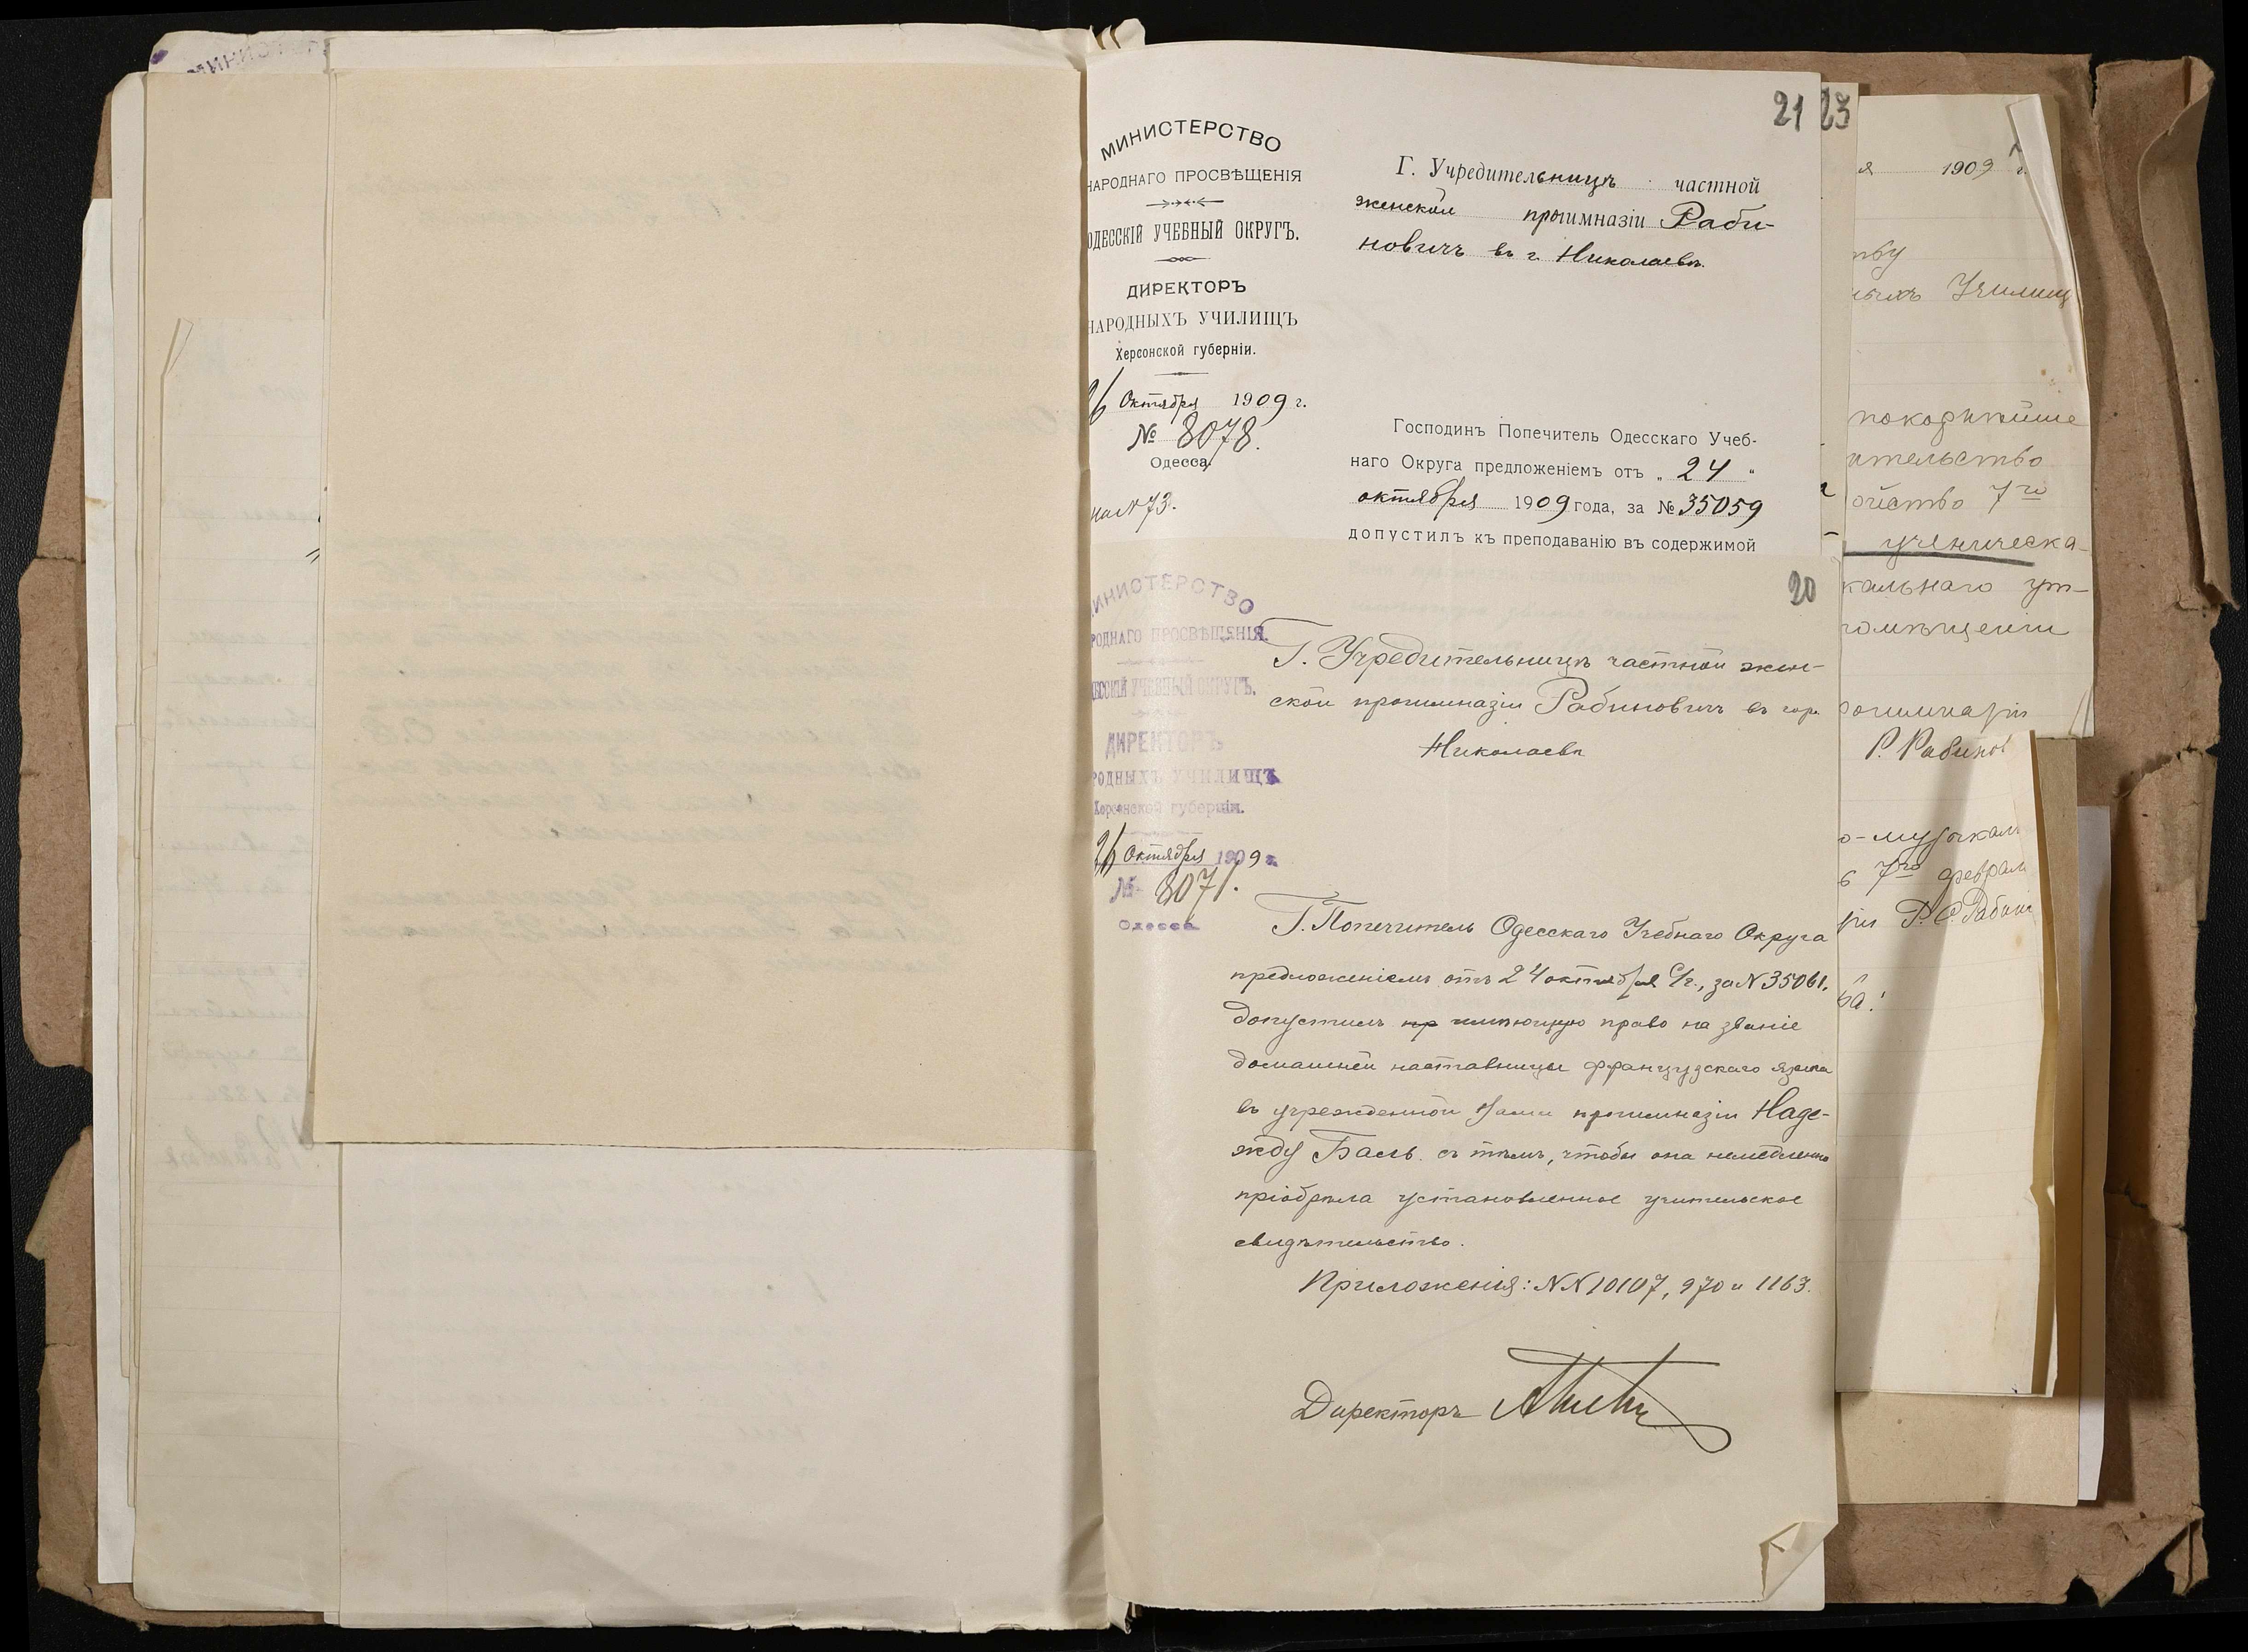 21
23
МИНИСТЕРСТВО
НАРОДНАГО ПРОСВѢЩЕНІЯ
ОДЕССКІЙ УЧЕБНЫЙ ОКРУГЪ.
ДИРЕКТОРЪ
НАРОДНЫХЪ УЧИЛИЩЪ
Херсонской губерніи.
26 Октября 1909 г.
№ 8078.
Одесса.
на № 73.
Г. Учредительницѣ частной
женской прогимназіи Раби-
новичъ въ г. Николаевѣ.
Господинъ Попечитель Одесскаго Учеб-
наго Округа предложеніемъ отъ „ 24 "
октября 1909 года, за № 35059
допустилъ къ преподаванію въ содержимой
20
МИНИСТЕРСТВО
РОДНАГО ПРОСВѢЩЕНІЯ.
ДЕССКІЙ УЧЕБНЫЙ ОКРУГЪ.
ДИРЕКТОРЪ
РОДНЫХЪ УЧИЛИЩЪ
Херсонской губерніи.
26 Октября 1909 г.
№ 8071.
Одесса
Г. Учредительницѣ частной жен-
ской прогимназіи Рабиновичъ въ гор.
Николаевѣ
Г. Попечитель Одесскаго Учебнаго Округа
предложеніемъ отъ 24 октября с/г., за N 35061.
допустилъ имѣющую право на званіе
домашней наставницы французскаго языка
въ учрежденной Вами прогимназіи Наде-
жду Баль съ тѣмъ, чтобы она немедленно
пріобрѣла установленное учительское
свидѣтельство.
Приложенія: NN 10107, 970 и 1163.
Директоръ
я 1909 г.
тву
ныхъ Училищ
покорнѣйше
ительство
ойство 7го
ученическа-
кальнаго ут-
помѣщеніи
рогимназіи
Р. Рабинов
о-музыкал
6 7го феврал
зіи Р. С. Рабин
ва!